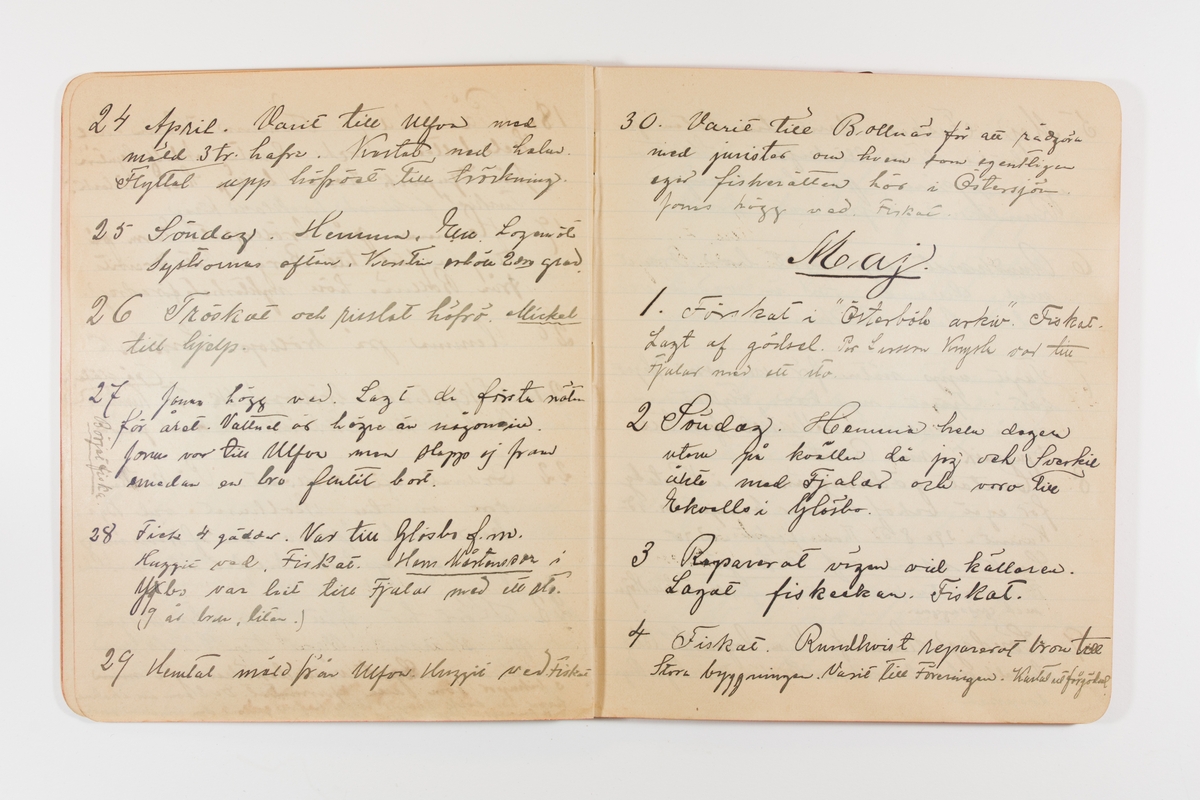 24 April. Varit till Ulfva med
mäld 3 tr. hafre. Kastat ned halm.
Flyttat upp höfröet till tröskning.
25 Söndag. Hemma.
Systrarnas afton. Kerstin
26 Tröskat och risslat höfrö. Mickel
till hjelp.
27 Jonas högg ved. Lagt de första näten
för året. Vattnet är högre än någonsin.
Jonas var till Ulfva men slapp ej fram
emedan en bro flutit bort.
Börjat fiske.
28 Fick 4 gäddor. Var till Glösbo f.m.
Huggit ved. Fiskat. Hans Mårtensson i
var hit till Fjalar med ett sto.
(9 år brun, liten.)
29 Hemtat mäld från Ulfva. Huggit ved Fiskat
30. Varit till Bollnäs för att rådgöra
med jurister om hvem som egentligen
eger fiskerätten här i Östersjön.
Jonas högg ved. Fiskat.
Maj.
1. Forskat i "Österböle arkiv". Fiskat.
Lagt af gödsel. Per Larsson var till
Fjalar med ett sto.
2 Söndag. Hemma hela dagen
utom på kvällen då jag och Sverkil
åkte med Fjalar och voro till
Ekvalls i Glösbo.
3 Reparerat vägen vid källaren.
Lagat fiskeekan. Fiskat.
4 Fiskat. Rundkvist reparerat bron till
Stora byggningen. Varit till Föreningen. Kastat